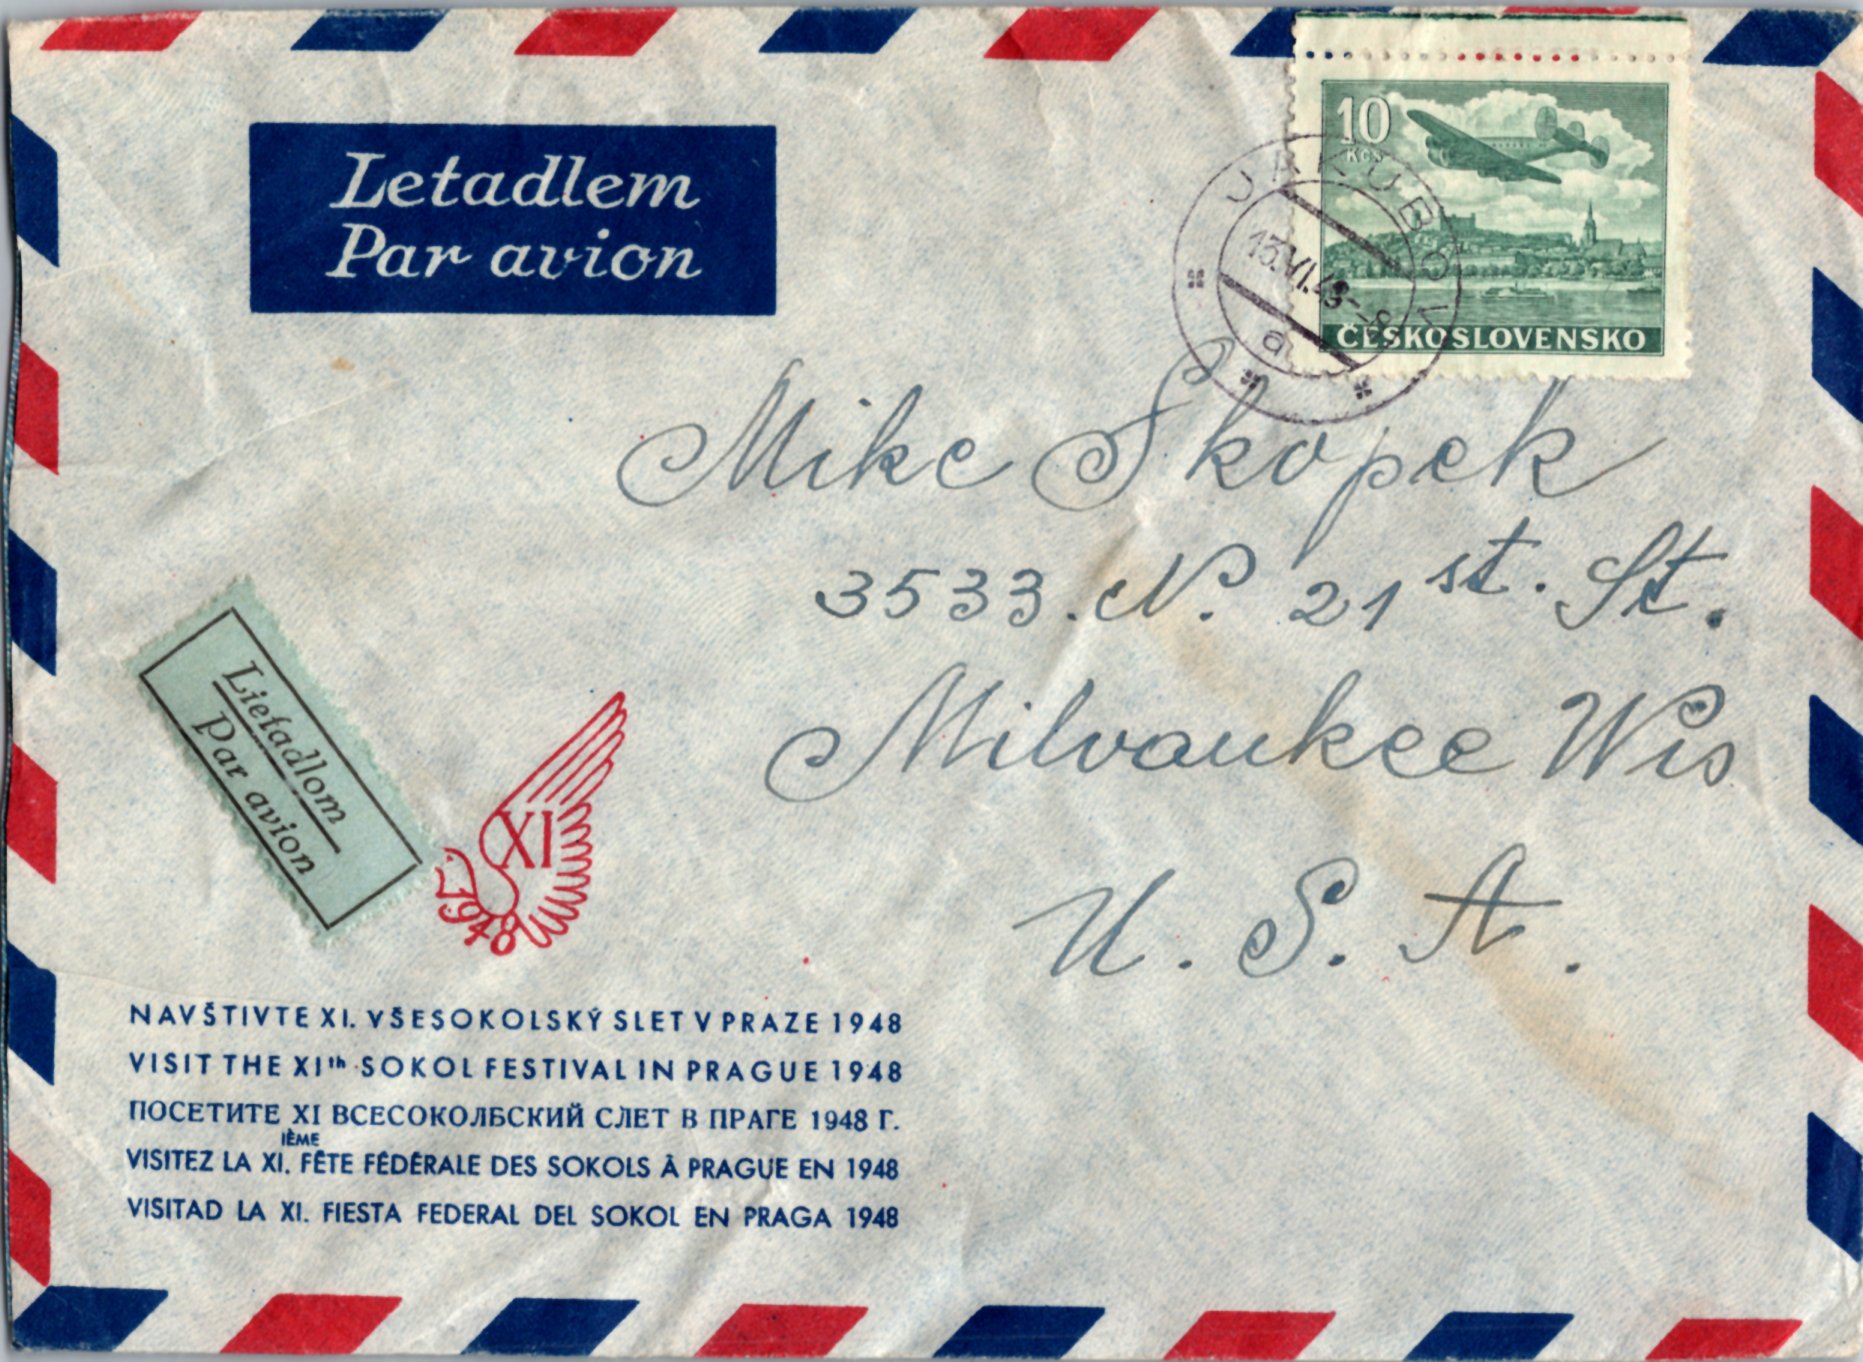 Letadlem
Par avion
10
Kčs
ČESKOSLOVENSKO
JAKUBOV
15.VI.48-
a
Mike Skopek
3533. N. 21st. St.
Milvaukee Wis
U. S. A.
Lietadlom
Par avion
XI
1948
NAVŠTIVTE XI. VŠESOKOLSKÝ SLET V PRAZE 1948
VISIT THE XIth SOKOL FESTIVAL IN PRAGUE 1948
ПОСЕТИТЕ XI ВСЕСОКОЛБСКИЙ СЛЕТ В ПРАГЕ 1948 Г.
VISITEZ LA XI.IÈME FÊTE FÉDÉRALE DES SOKOLS À PRAGUE EN 1948
VISITAD LA XI. FIESTA FEDERAL DEL SOKOL EN PRAGA 1948